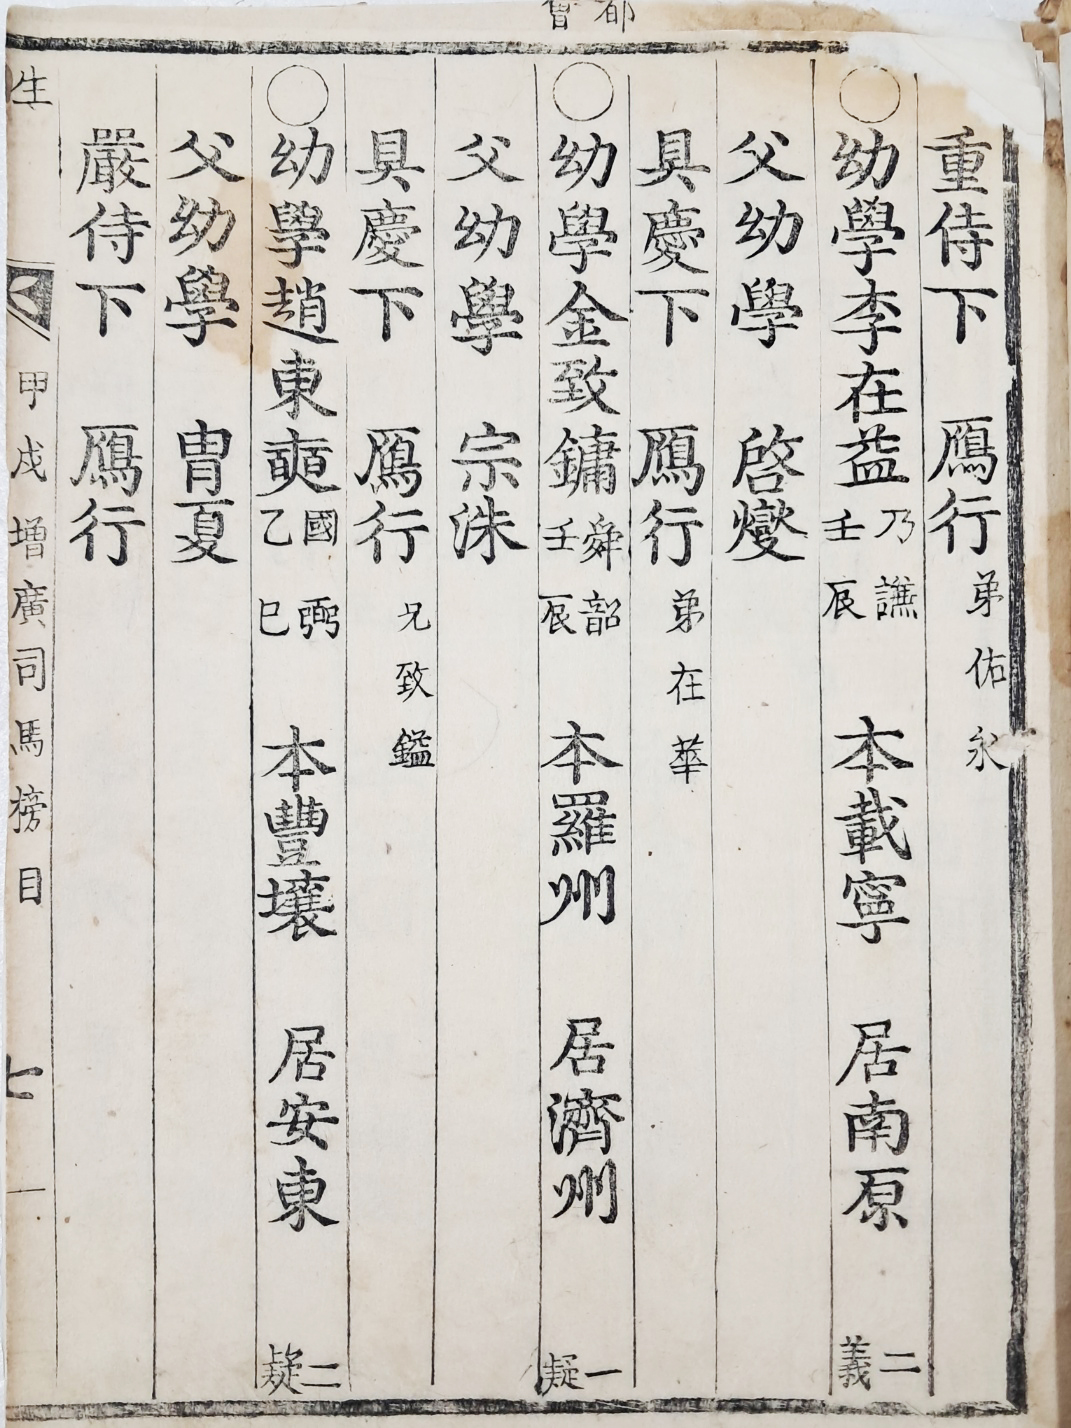 都會
重侍下 鴈行 弟佑永
幼學李在益 乃譕 壬辰 本載寧 居南原 二義
父幼學 啓燮
具慶下 鴈行 弟在華
幼學金致鏞 舜韶 壬辰 本羅州 居濟州 一疑
父幼學 宗洙
具慶下 鴈行 兄致鎰
幼學趙東奭 國弼 乙巳 本豐壤 居安東 二疑
父幼學 冑夏
嚴侍下 鴈行
生 甲戌增廣司馬榜目 七